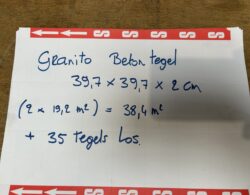 Granito Beton tegel
39,7 x 39,7 x 2 cm
(2 x 19,2 m²) = 38,4 m²
+ 35 tegels Los.